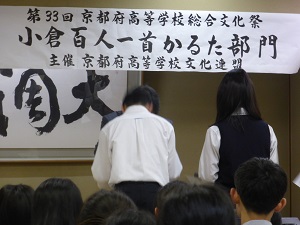 第33回 京都府高等学校総合文化祭
小倉百人一首かるた部門
主催 京都府高等学校文化連盟